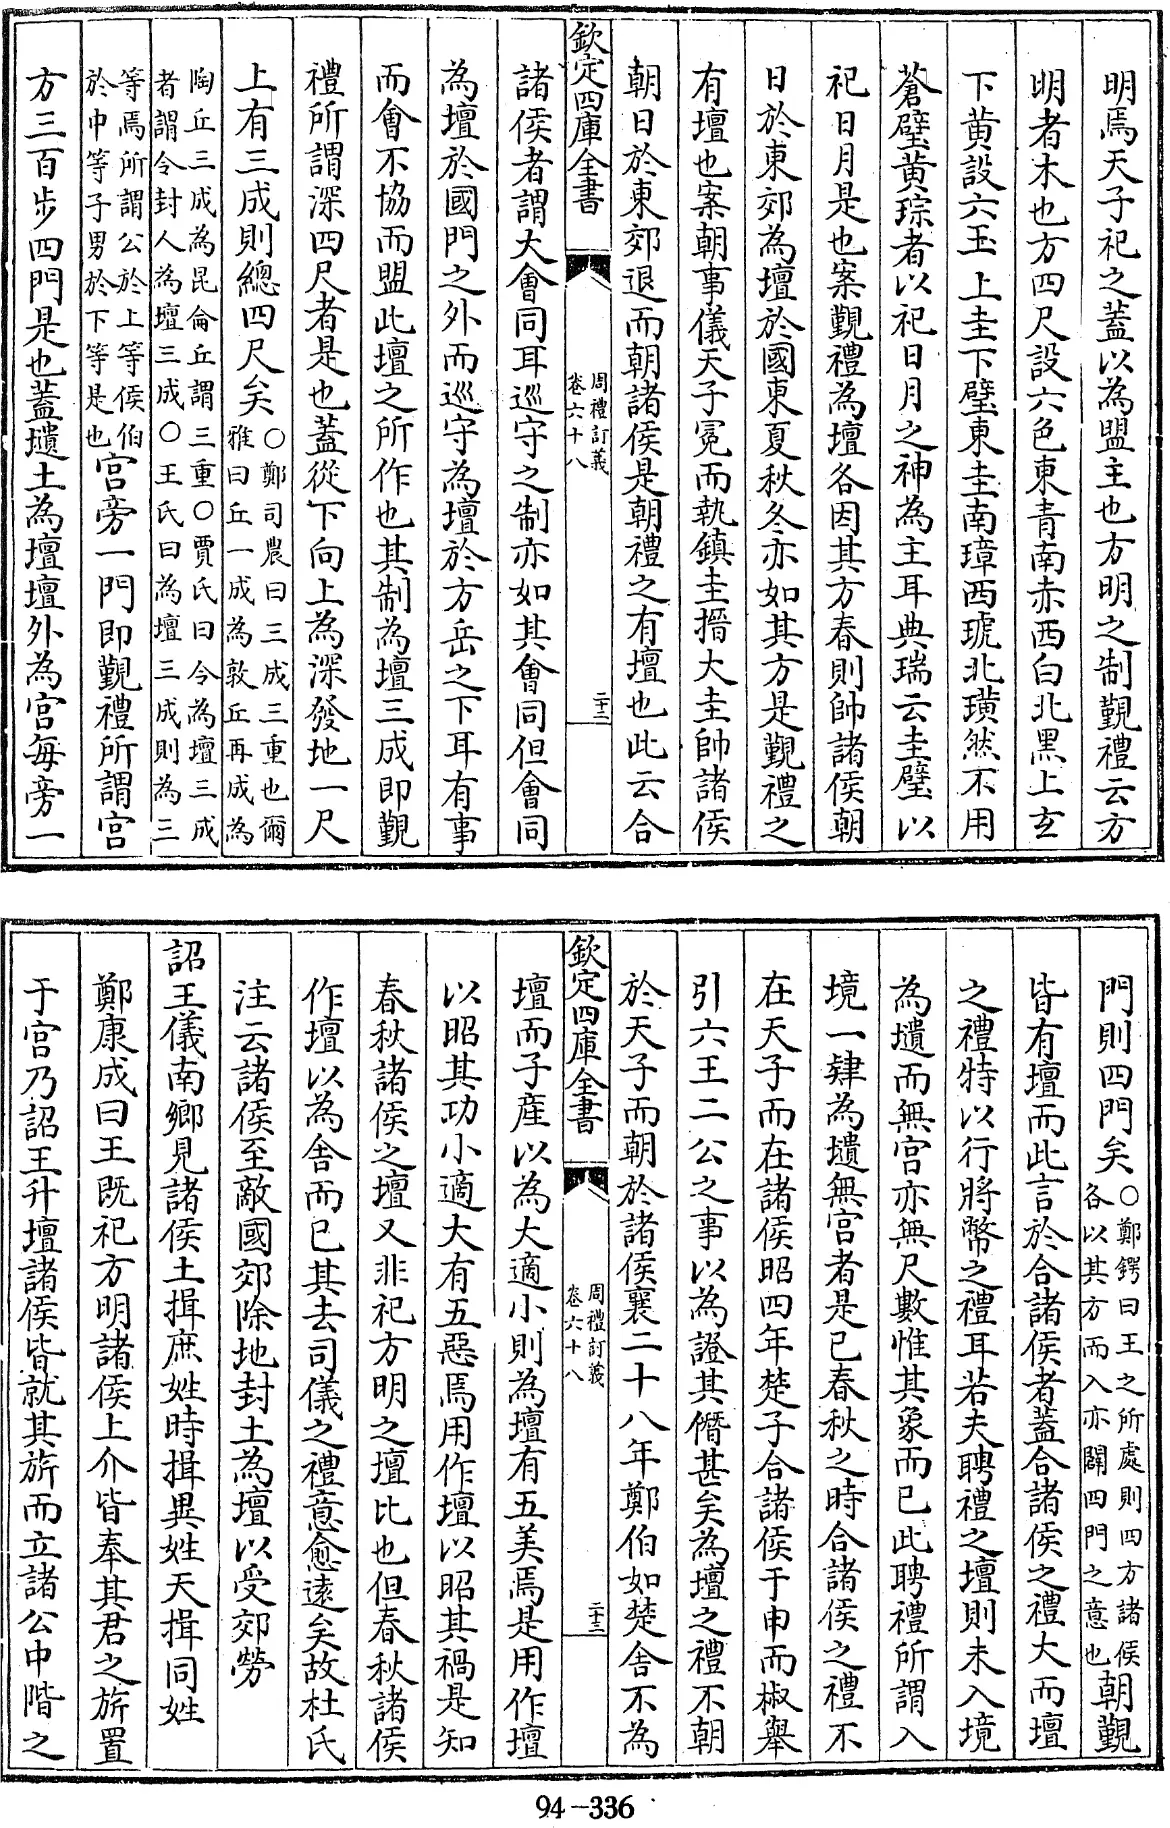 明焉天子祀之蓋以為盟主也方明之制觀禮云方
明者木也方四尺設六色東青南赤西白北黑上玄
下黄設六玉上圭下璧東圭南璋西琥北璜然不用
蒼璧黄琮者以祀日月之神為主耳典瑞云圭璧以
祀日月是也案觀禮為壇各因其方春則帥諸侯朝
日於東郊為壇於國東夏秋冬亦如其方是觀禮之
有壇也案朝事儀天子冕而執鎮圭搢大圭帥諸侯
朝日於東郊退而朝諸侯是朝禮之有壇也此云合
欽定四庫全書
周禮訂義
卷六十八
二十二
諸侯者謂大會同耳巡守之制亦如其會同但會同
為壇於國門之外而巡守為壇於方岳之下耳有事
而會不協而盟此壇之所作也其制為壇三成即觀
禮所謂深四尺者是也蓋從下向上為深發地一尺
上有三成則總四尺矣
○鄭司農曰三成三重也爾
雅曰丘一成為敦丘再成為
陶丘三成為昆侖丘謂三重○賈氏曰令為壇三成
者謂令封人為壇三成○王氏曰為壇三成則為三
等焉所謂公於上等侯伯
於中等子男於下等是也
宫旁一門即觀禮所謂宫
方三百步四門是也蓋壝土為壇壇外為宫每旁一
門則四門矣
○鄭鍔曰王之所處則四方諸侯
各以其方而入亦闢四門之意也
朝觀
皆有壇而此言於合諸侯者蓋合諸侯之禮大而壇
之禮特以行將幣之禮耳若夫聘禮之壇則未入境
為壝而無宫亦無尺數惟其象而已此聘禮所謂入
境一肄為壝無宫者是已春秋之時合諸侯之禮不
在天子而在諸侯昭四年楚子合諸侯于申而椒舉
引六王二公之事以為證其僭甚矣為壇之禮不朝
於天子而朝於諸侯襄二十八年鄭伯如楚舍不為
欽定四庫全書
周禮訂義
卷六十八
二十三
壇而子產以為大適小則為壇有五美焉是用作壇
以昭其功小適大有五惡焉用作壇以昭其禍是知
春秋諸侯之壇又非祀方明之壇比也但春秋諸侯
作壇以為舍而已其去司儀之禮意愈遠矣故杜氏
注云諸侯至敵國郊除地封土為壇以受郊勞
詔王儀南鄉見諸侯土揖庶姓時揖異姓天揖同姓
鄭康成曰王既祀方明諸侯上介皆奉其君之旂置
于宫乃詔王升壇諸侯皆就其旂而立諸公中階之
94-336